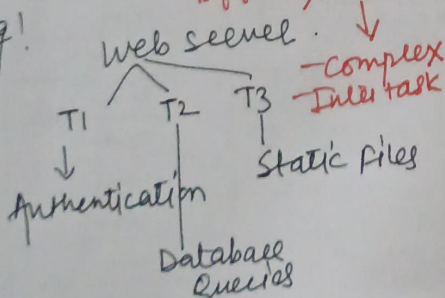 Web server.
- Complex
- Inter task
T1 T2 T3
Static files
Authentication
Database
Queries